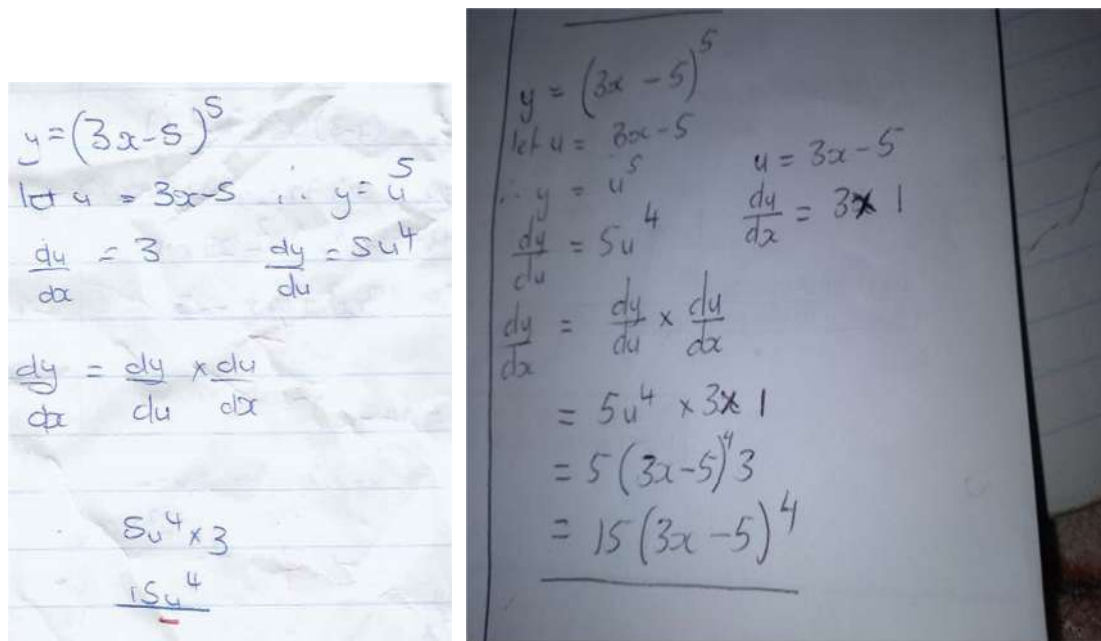 y = (3x-5)^5
let u = 3x-5 ∴ y = u^5
du/dx = 3 dy/du = 5u^4
dy/dx = dy/du × du/dx
5u^4 × 3
15u^4
y = (3x - 5)^5
let u = 3x - 5
∴ y = u^5 u = 3x - 5
dy/du = 5u^4 du/dx = 3× 1
dy/dx = dy/du × du/dx
= 5u^4 × 3× 1
= 5(3x-5)^4 3
= 15(3x - 5)^4